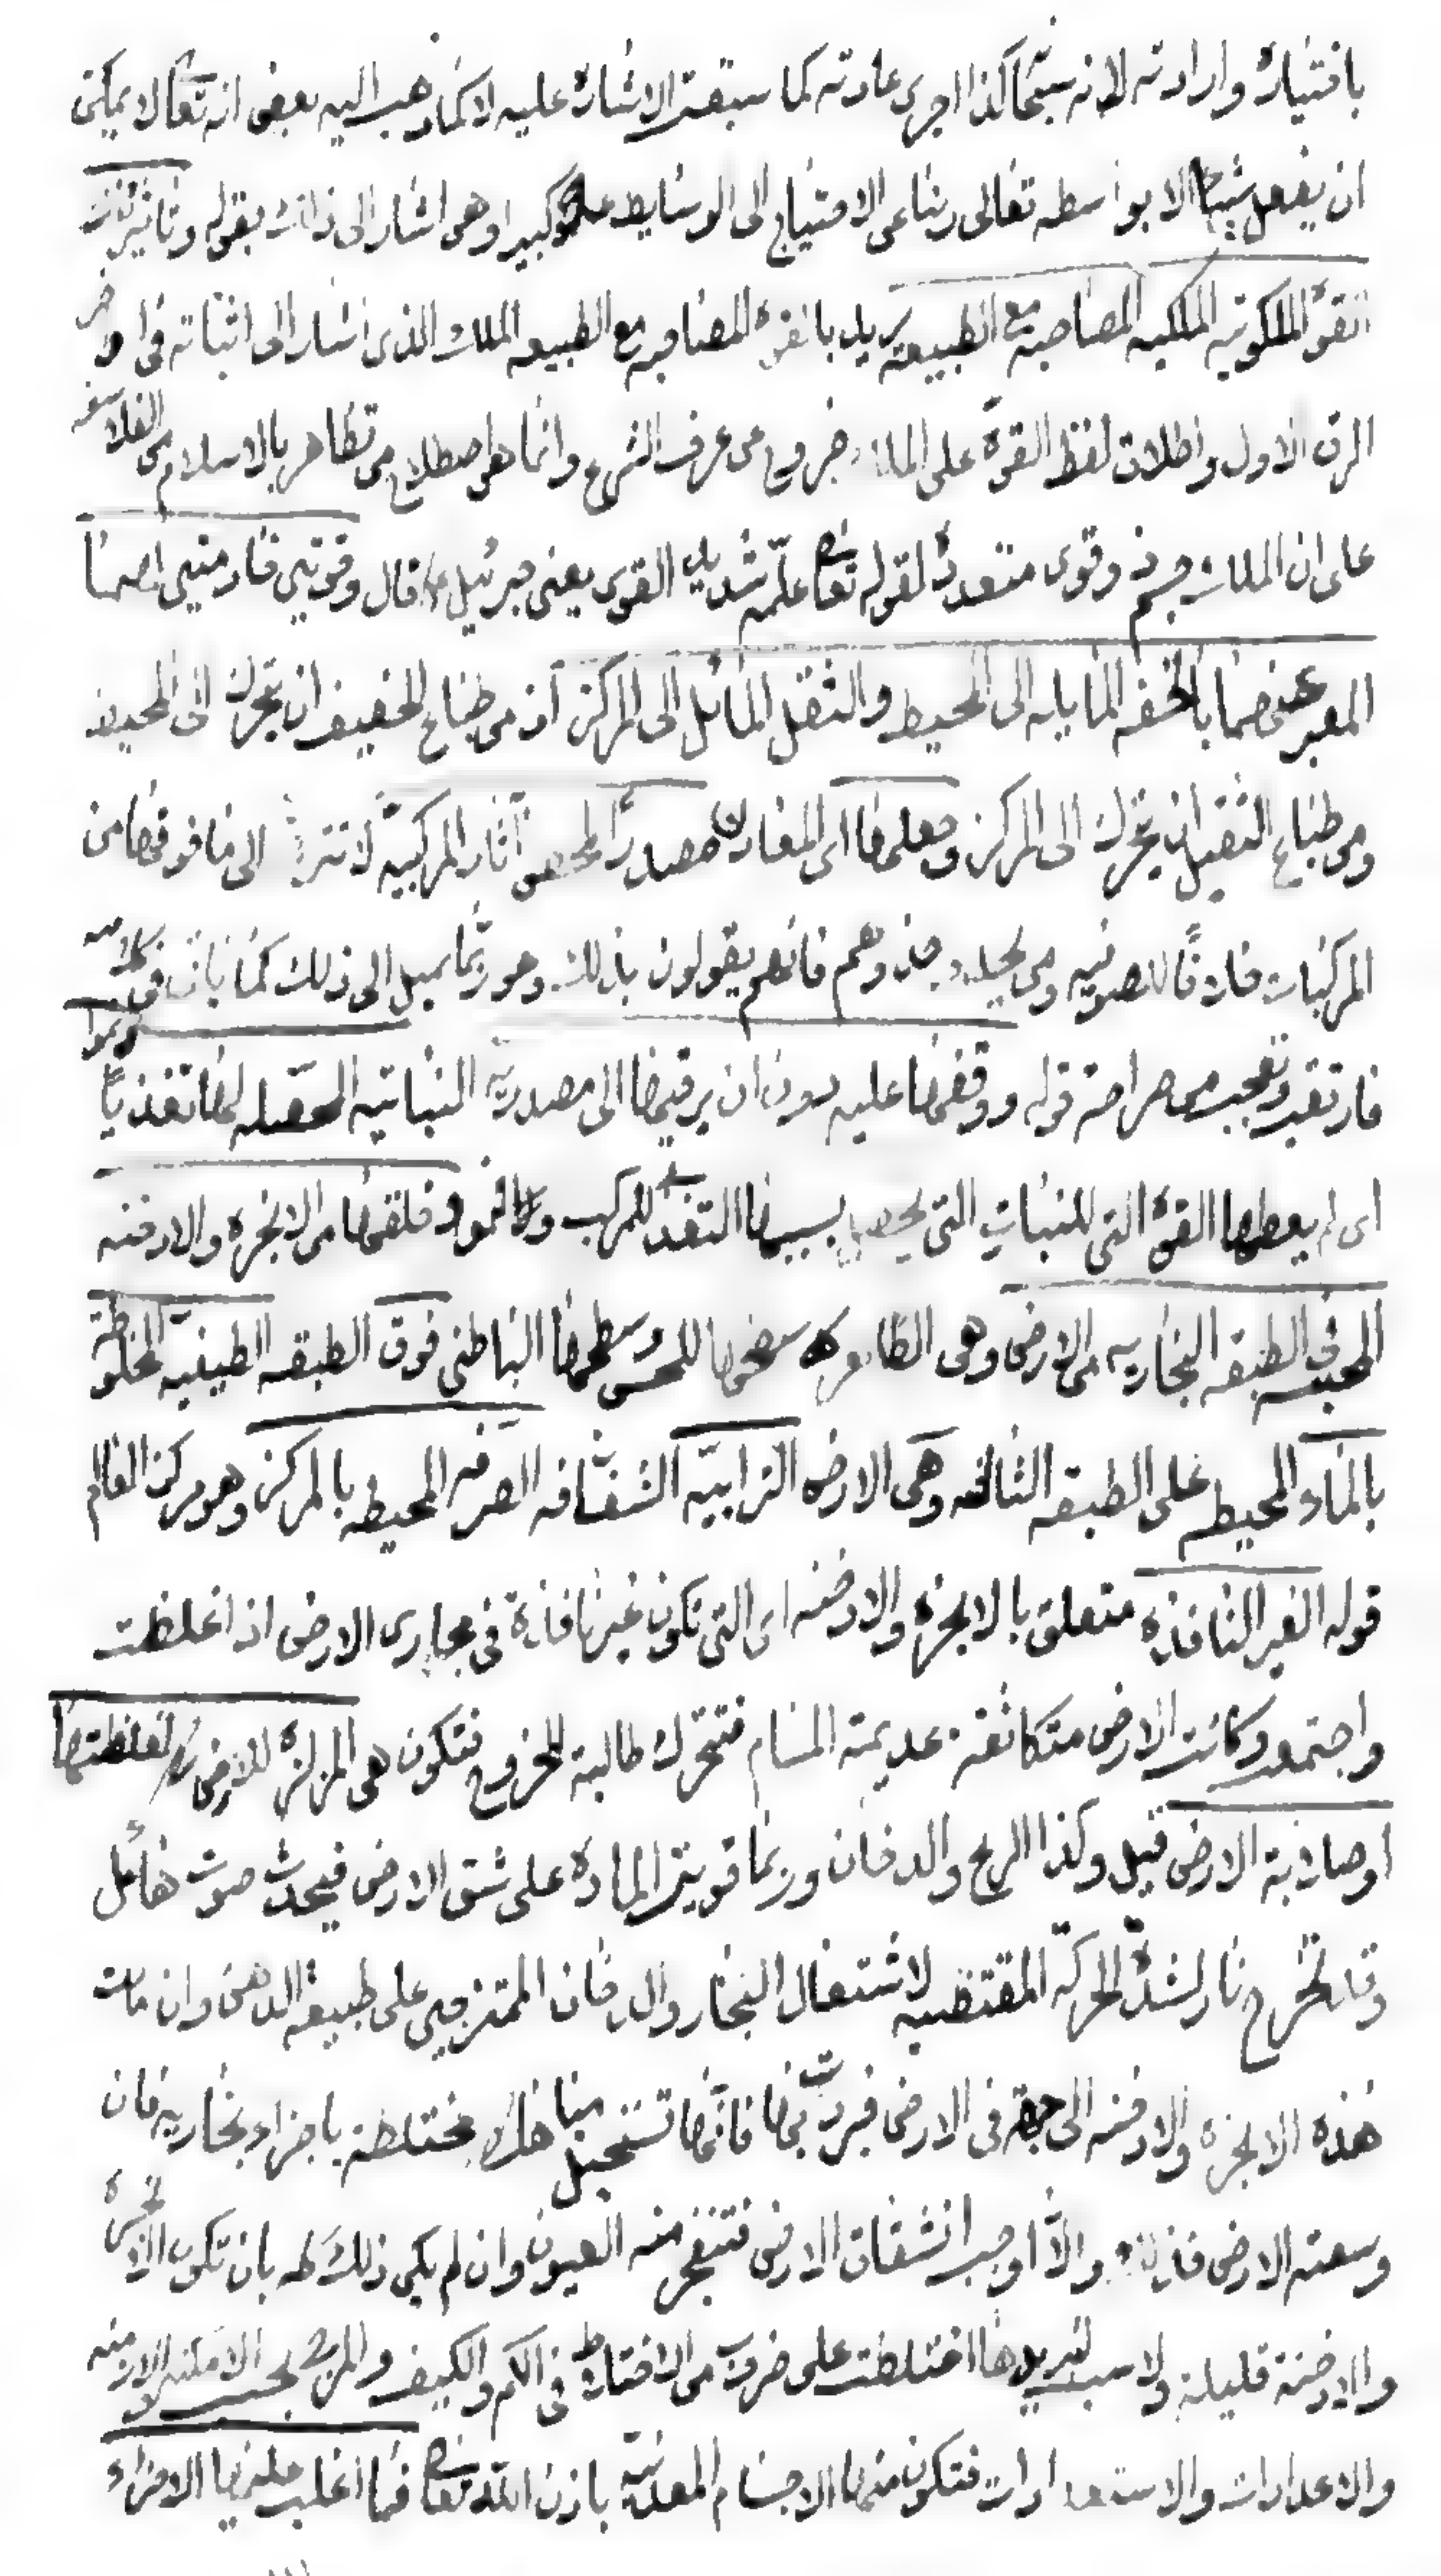 باختياره وارادته لانه سبحانه كذا اجرى عادته كما سبقت الاشارة عليه لا كما ذهب اليه بعض انه تعالى لا يمكن
ان يفعل شيئا الا بواسطه تعالى ربنا عن الاحتياج الى الوسايط علوا كبيرا وهو اشار الى ذلك بقوله وتاثيرات
القوة الملكوتيه الملكيه المصاحبه مع الطبيعة يريد بالقوة المصاحبه مع الطبيعه الملك الذى اشار الى اثباته فى اواخر
الرق الاول واطلاق لفظ القوة على الملك خروج عن عرف الشرع وانما هو اصطلاح من تظاهر بالاسلام من الفلاسفه
على ان الملك جسم ذو قوى متعددة لقوله تعالى علمه شديد القوى يعنى جبرئيل ع قال وقوتي
المعبر عنهما بالخفه المايله الى المحيط والثقل المائل الى المركز اذ من طباع الخفيف ان يتحرك الى المحيط
ومن طباع الثقيل ان يتحرك الى المركز وجعلهما اى مصدرا آثار المركبيه لا تترقى الى ما فوقها من
المركبات خلافا للصوفيه ومن يحذو حذوهم فانهم يقولون بذلك وهو ربما يميل الى ذلك كما ياتى فى كلامه
من صراحة قوله ووقفهما عليه بدون ان يرقيهما الى مصدرية النباتيه لها تغذيا ونموا
اى لم يعطها القوة التى للنبات التى يحصل بسببها التغذى للمركب والنمو فخلقها من الابخره والادخنه
المحتبسه فى الطبقه البخاريه من الارض وهى الظاهر سطحها للحس وسطحها الباطنى فوق الطبقه الطينيه المخلوطة
بالماء المحيطه على الطبقه الثالثه وهى الارض الترابيه الشفافه الصرفه المحيطه بالمركز وهو مركز العالم
قوله الغير النافذه متعلق بالابخره والادخنه اى التى تكون غير نافذة فى مجارى الارض اذا غلظت
واجتمعت وكانت الارض متكاثفة عديمة المسام فتتحرك طالبة للخروج فتكون هى المزلزلة للارض لغلظتها
او صلابة الارض قيل وكذا الريح والدخان وربما قويت المادة على شق الارض فيحدث صوت هائل
وقد تخرج نار لشدة الحركة المقتضيه لاشتعال البخار والدخان الممتزجين على طبيعة الدهن وان مالت
هذه الابخره والادخنه الى جهة فى الارض فبردت بها فانها تستحيل مياها مختلطة باجزاء بخاريه فان
وسعته الارض فذاك والا اوجب انشقاق الارض فتنفجر منه العيون وان لم يكن ذلك له بان تكون الابخره
والادخنة قليلة ولا سبب لتبريدها اختلطت على ضروب من الاختلاط فى الكم والكيف والمزج بحسب الامكنه والازمنه
والاعدادات والاستعدادات فتكون منها الاجسام المعدنية باذن الله تعالى فما اغلب عليها الاجزاء